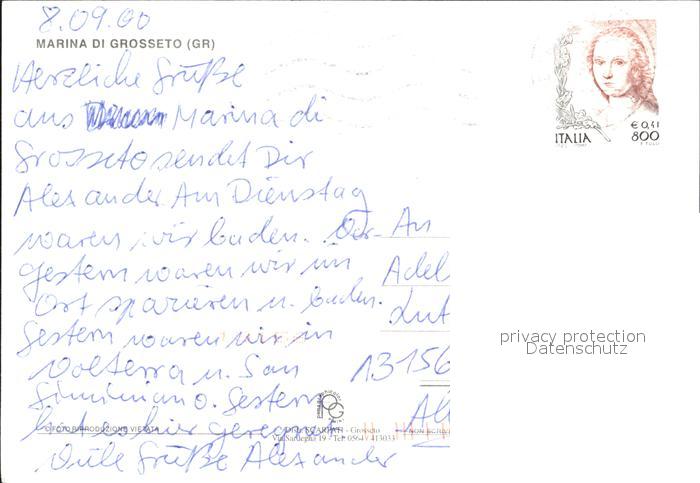 8.09.00
MARINA DI GROSSETO (GR)
Herzliche Grüße
aus Marina di
Grosseto sendet Dir
Alexander Am Dienstag
waren wir baden.
gestern waren wir im
Ort spazieren u. baden.
Gestern waren wir in
Volterra u. San
Gimimiano. Gestern
hat es hier geregnet
Viele Grüße Alexander
An
Adel
Lut
13156
All
ITALIA
€ 0,41
800
privacy protection
Datenschutz
© FOTORIPRODUZIONE VIETATA
Distr. SCARPATI - Grosseto
Via Sardegna 19 - Tel. 0564 / 413033
NON SCRIVE